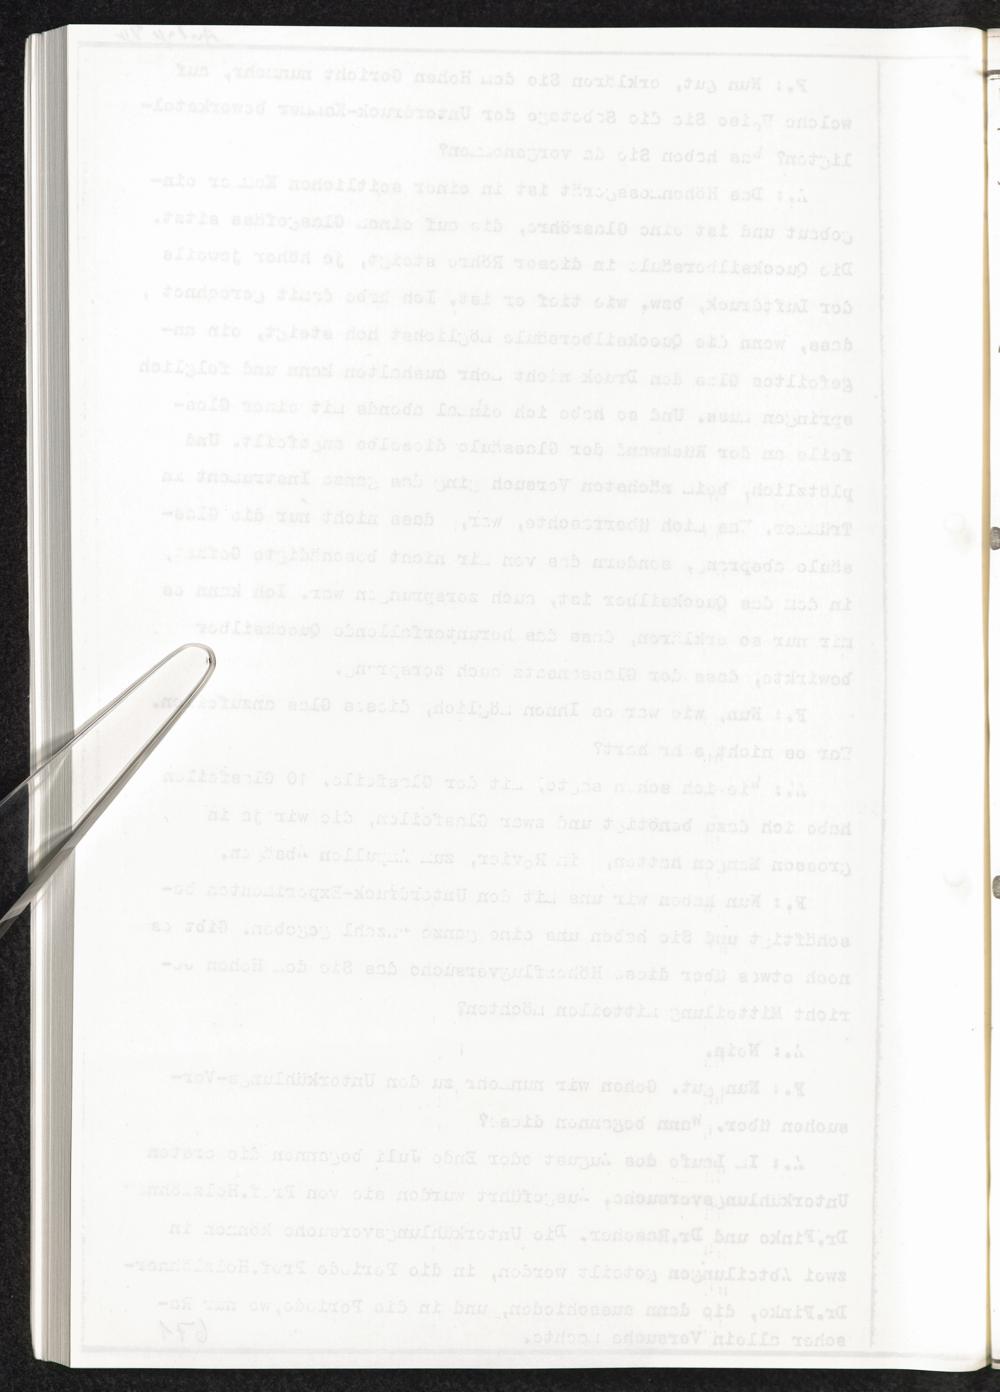 F.: Nun gut, erklären Sie dem Hohen Gericht nunmehr, auf
welche Weise Sie die Sabotage der Unterdruck-Kammer bewerkstel-
ligten? Was haben Sie da vorgenommen?
A.: Das Höhenmessgerät ist in einer seitlichen Kammer ein-
gebaut und ist eine Glasröhre, die auf einem Glasgefäss sitzt.
Die Quecksilbersäule in dieser Röhre steigt, je höher jeweils
der Luftdruck, bzw. wie tief er ist. Ich habe damit gerechnet,
dass, wenn die Quecksilbersäule möglichst hoch steigt, ein an-
gefeiltes Glas den Druck nicht mehr aushalten kann und folglich
springen muss. Und so habe ich einmal abends mit einer Glas-
feile an der Rückwand der Glassäule dieselbe angefeilt. Und
plötzlich, beim nächsten Versuch ging das ganze Instrument in
Trümmer. Was mich überraschte, war, dass nicht nur die Glas-
säule absprang, sondern das von mir nicht beschädigte Gefäss,
in dem das Quecksilber ist, auch zersprungen war. Ich kann es
mir nur so erklären, dass das herunterfallende Quecksilber
bewirkte, dass der Glasansatz auch zersprang.
F.: Nun, wie war es Ihnen möglich, dieses Glas anzufeilen.
War es nicht sehr hart?
A.: Wie ich schon sagte, mit der Glasfeile. 10 Glasfeilen
habe ich dazu benötigt und zwar Glasfeilen, die wir ja in
grossen Mengen hatten, im Revier, zum Ampullen
F.: Nun haben wir uns mit den Unterdruck-Experimenten be-
schäftigt und Sie haben uns eine ganze Anzahl gegeben. Gibt es
noch etwas über diese Höhenflugversuche das Sie dem Hohen Ge-
richt Mitteilung mitteilen möchten?
A.: Nein.
F.: Nun gut. Gehen wir nunmehr zu den Unterkühlungs-Ver-
suchen über. Wann begannen diese?
A.: Im Laufe des August oder Ende Juli begannen die ersten
Unterkühlungsversuche, Ausgeführt wurden sie von Prof.Holzlöhner
Dr.Finke und Dr.Rascher. Die Unterkühlungsversuche können in
zwei Abteilungen geteilt werden, in die Periode Prof.Holzlöhner-
Dr.Finke, die dann ausschieden, und in die Periode, wo nur Ra-
scher allein Versuche machte.
671